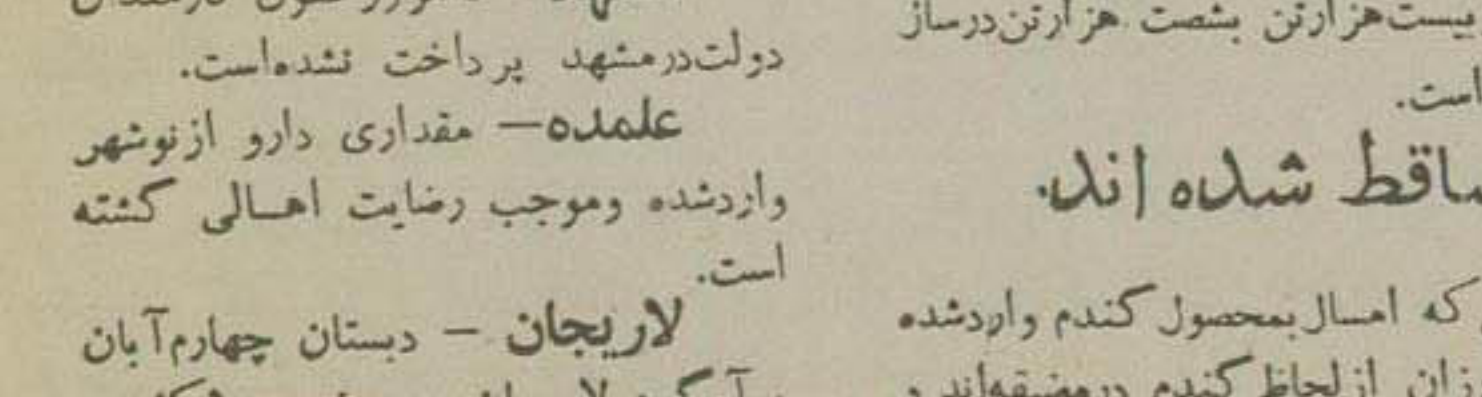 بیست‌هزارتن بشصت هزارتن‌درساز
است.
ساقط شده اند.
که امسال‌بمحصول گندم واردشده
ازلحاظ گندم درمضیقه‌اند و
دولت‌درمشهد پرداخت نشده‌است.
علمده— مقداری دارو ازنوشهر
واردشده وموجب رضایت اهالی گشته
است.
لاریجان — دبستان چهارم‌آبان